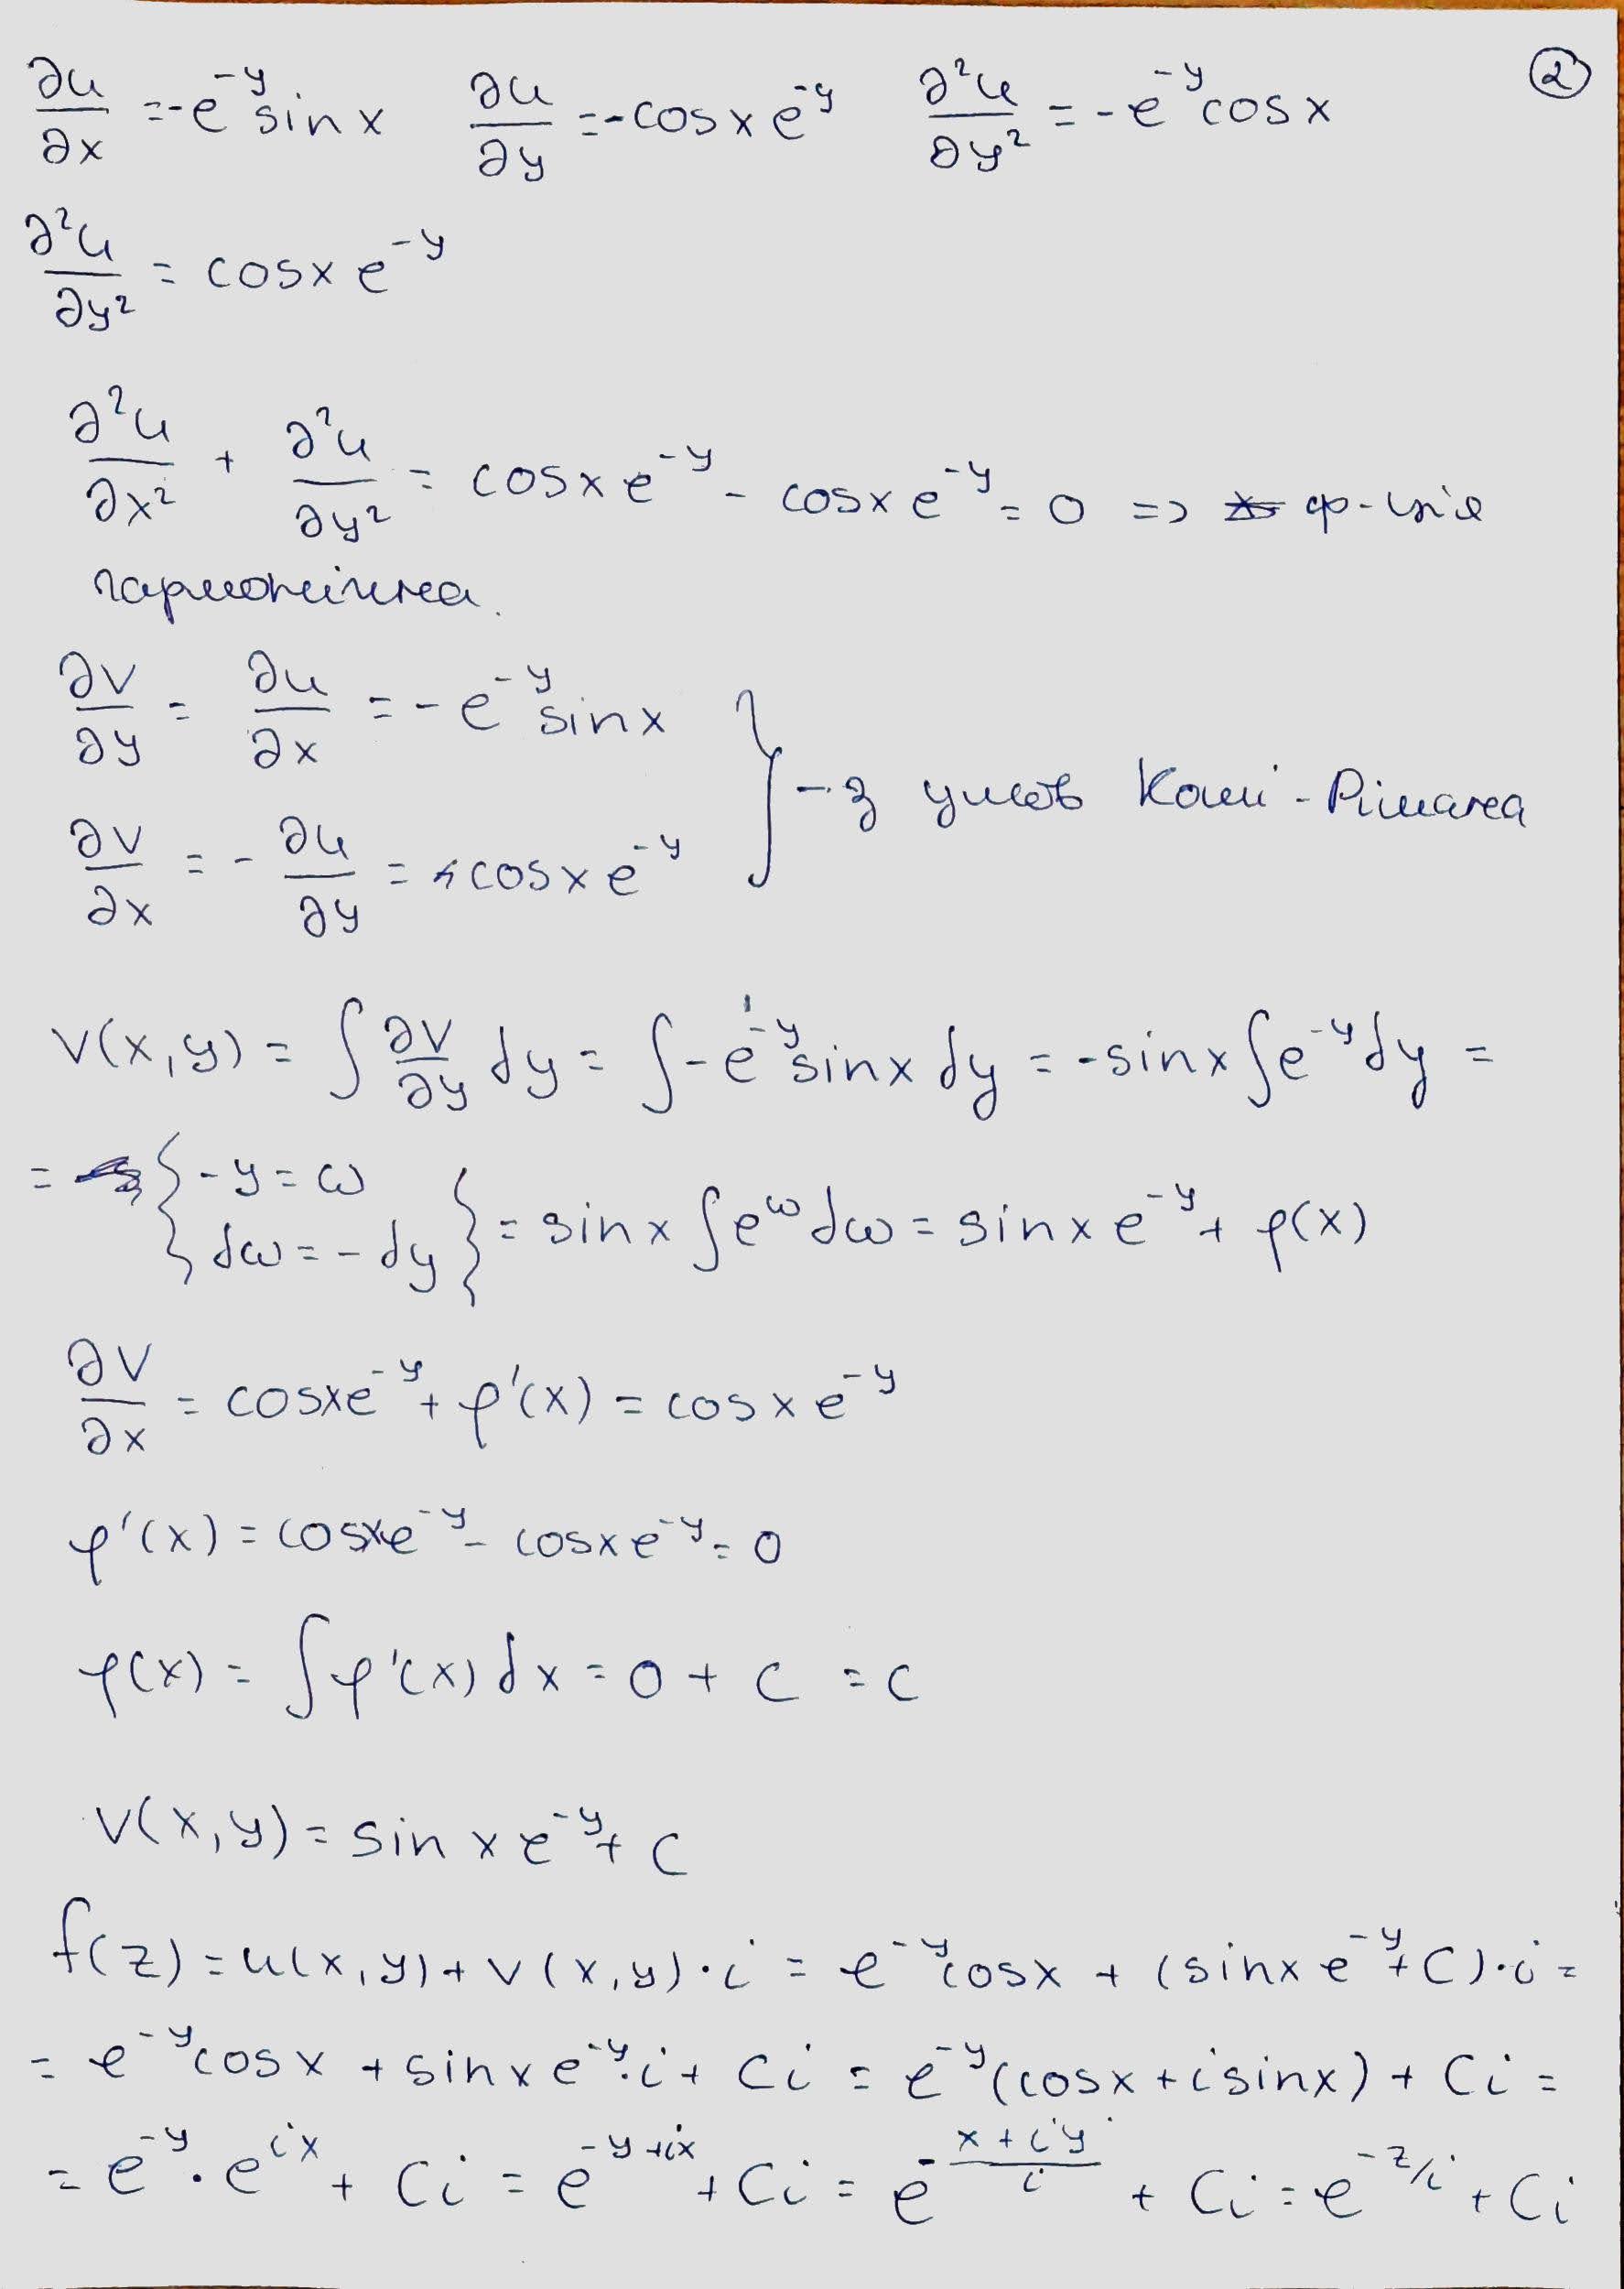 ②
∂u/∂x = -e^{-y} sin x   ∂u/∂y = -cos x e^{-y}   ∂²u/∂y² = -e^{-y} cos x
∂²u/∂y² = cos x e^{-y}
∂²u/∂x² + ∂²u/∂y² = cos x e^{-y} - cos x e^{-y} = 0 => ф-ція
гармонійна.
∂v/∂y = ∂u/∂x = -e^{-y} sin x
} - з умов Коші-Рімана
∂v/∂x = -∂u/∂y = cos x e^{-y}
v(x,y) = ∫ ∂v/∂y dy = ∫ -e^{-y} sin x dy = -sin x ∫ e^{-y} dy =
= { -y = ω  dω = -dy } = sin x ∫ e^ω dω = sin x e^{-y} + φ(x)
∂v/∂x = cos x e^{-y} + φ'(x) = cos x e^{-y}
φ'(x) = cos x e^{-y} - cos x e^{-y} = 0
φ(x) = ∫ φ'(x) dx = 0 + C = C
v(x,y) = sin x e^{-y} + C
f(z) = u(x,y) + v(x,y)·i = e^{-y} cos x + (sin x e^{-y} + C)·i =
= e^{-y} cos x + sin x e^{-y}·i + Ci = e^{-y}(cos x + i sin x) + Ci =
= e^{-y}·e^{ix} + Ci = e^{-y+ix} + Ci = e^{-(x+iy)/i} + Ci = e^{-z/i} + Ci